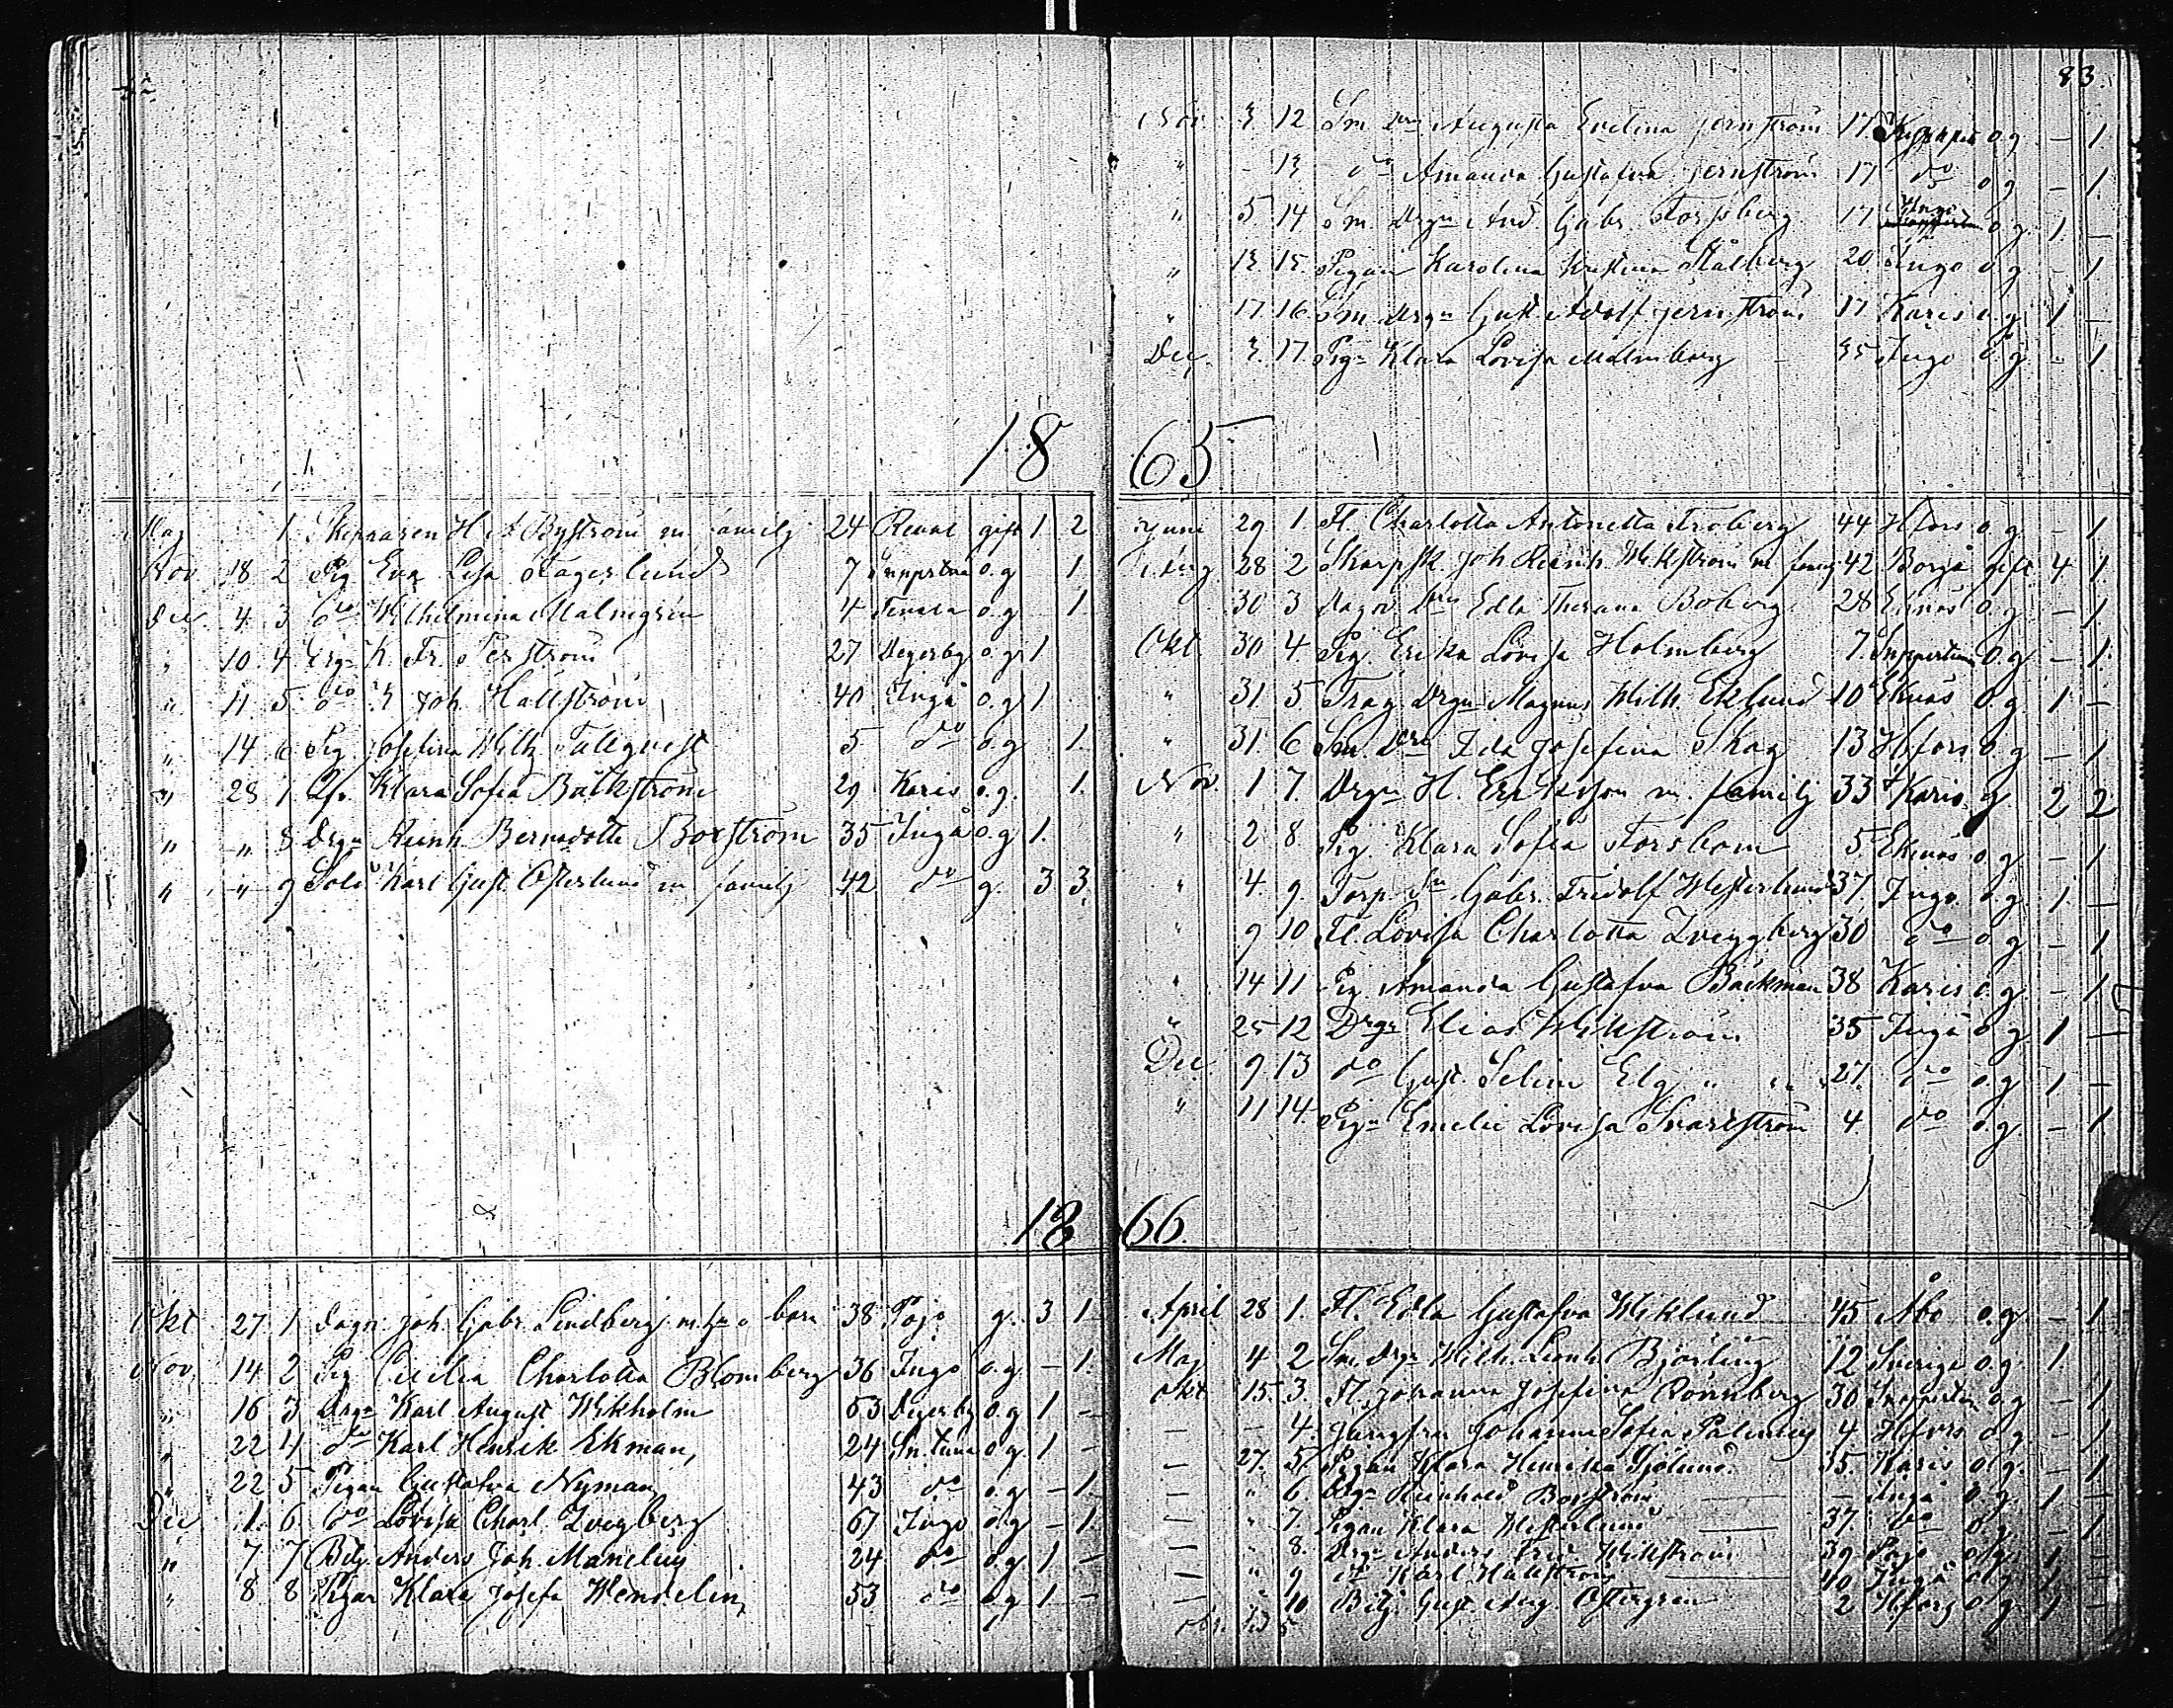 83.
Nov. 3 12 Sm. Drn Augusta Evelina Jernström 17 o.g - 1.
" - 13 do Amanda Gustafva Jernström 17 do o.g - 1.
" 5 14 Sm. Drgn And. Gabr. Forssberg 17 o.g. 1 -
" 13 15. Pigan Karolina Kristina Stålberg 20 Ingo o.g - 1
" 17 16 Sm. Drgn Gust. Adolf Jernström 17 Karis o.g. 1 -
Dec. 3. 17. Pign Klara Lovisa Malmberg - 35 Ingo o.g - 1.
18 65
Maj 1. Skepparen H. A. Byström m. familj 24 Reval gift 1 2
Nov 18 2 Pig Eva Lisa Lagerlund 7 o.g 1.
Dec. 4. 3 do Wilhelmina Malmgrén 4 Tenala o.g 1.
" 10. 4 Drgn K. Fr. Perström 27 Degerby o.g. 1
" 11. 5. do K Joh. Hällström 40 Ingå o.g 1
" 14 6 Pig Josefina Wilh. Tallqvist 5 do o.g 1.
" 28 7 Klara Sofia Bäckström 29 Karis o.g. 1.
" " 8 Drgn Reinh Bernadotte Boxström 35 Ingå o.g 1.
" " 9 Sold Karl Gust. Österlund m familj 42 do g. 3 3.
Juni 29 1. Fl. Charlotta Antonetta Froberg 44 Hfors o.g - 1
Aug 28 2 Skarpsk. Joh Reinh. Wikström m famij 42 Borgå gift 4 1.
30 3 Edla Theresa Boberg 28 Eknäs o.g - 1.
Okt. 30 4. Pig. Erika Lovisa Holmberg 7. o.g - 1.
" 31 5 Drgn Magnus Wilh. Eklund 10 Eknäs o.g 1 -
" 31. 6 Sm. Drn Ida Josefina Skog 13 Hfors o.g - 1
Nov. 1 7. Drgn H. Eriksson m. familj 33 Karis g 2 2
" 2 8 Pig. Klara Sofia Forsbom 5. Eknäs o.g - 1
" 4. 9. Torp. Sn Gabr. Fridolf Westerlund 37. Ingo. o.g 1 -
" 9 10 Fl. Lovisa Charlotta Zveygberg 30 do o.g - 1
" 14 11 Pig. Amanda Gustafva Bäckman 38 Karis o.g - 1
" 25 12 Drgn Elias Wikström 35 Ingå o.g 1 -
Dec. 9 13 do Gust. Selim Elg " " " 27. do o.g 1 -
" 11 14. Pign Emelie Lovisa Svartström 4 do o.g. - 1.
18 66
Okt 27 1 Joh. Gabr. Lindberg 38 Pojo g. 3 1
Nov. 14 2 Pig Cecilia Charlotta Blomberg 36 Ingo o.g - 1.
" 16 3 Drgn Karl August Wikholm 53 Degerby o.g 1 -
" 22 4 do Karl Henrik Ekman, 24 o.g. 1 -
" 22 5 Pigan Gustafva Nyman 43 do o.g - 1
Dec 1. 6. do Lovisa Charl. Zvegberg 67 Ingo o.g - 1.
" 7 7 Betj. Anders Joh. Manelius 24 do o.g 1 -
" 8 8 Pigan Klara Josefa Wendelin, 53 do o.g 1 -
April 28 1. Fl. Edla Gustafva Wiklund 45 Åbo o.g. - 1.
Maj 4 2 Sm. Drgn Wilh. Leonh. Björling 12 Sverige o.g. 1.
Okt. 15. 3. Fl. Johanna Josefina Rönnberg 30 o.g - 1
— - 4. Jungfru Johanna Sofia 4 Hfors o.g - 1
— 27. 5. Pigan Klara Henrika Sjölund. 35. Karis o.g. - 1
— " 6. Drgn Reinhold Boxström — — Ingå o.g. 1 -
— " 7. Pigan Klara Westerlund — 37. do o.g. - 1
— " 8. Drgn Anders Fred. Wikström 39 Pojo o.g. 1 -
— " 9 Karl Hällström — 40 Ingå o.g. 1 -
— " 10 Betj. Gust. Aug. Östergrén 2 Hfors o.g. 1 -